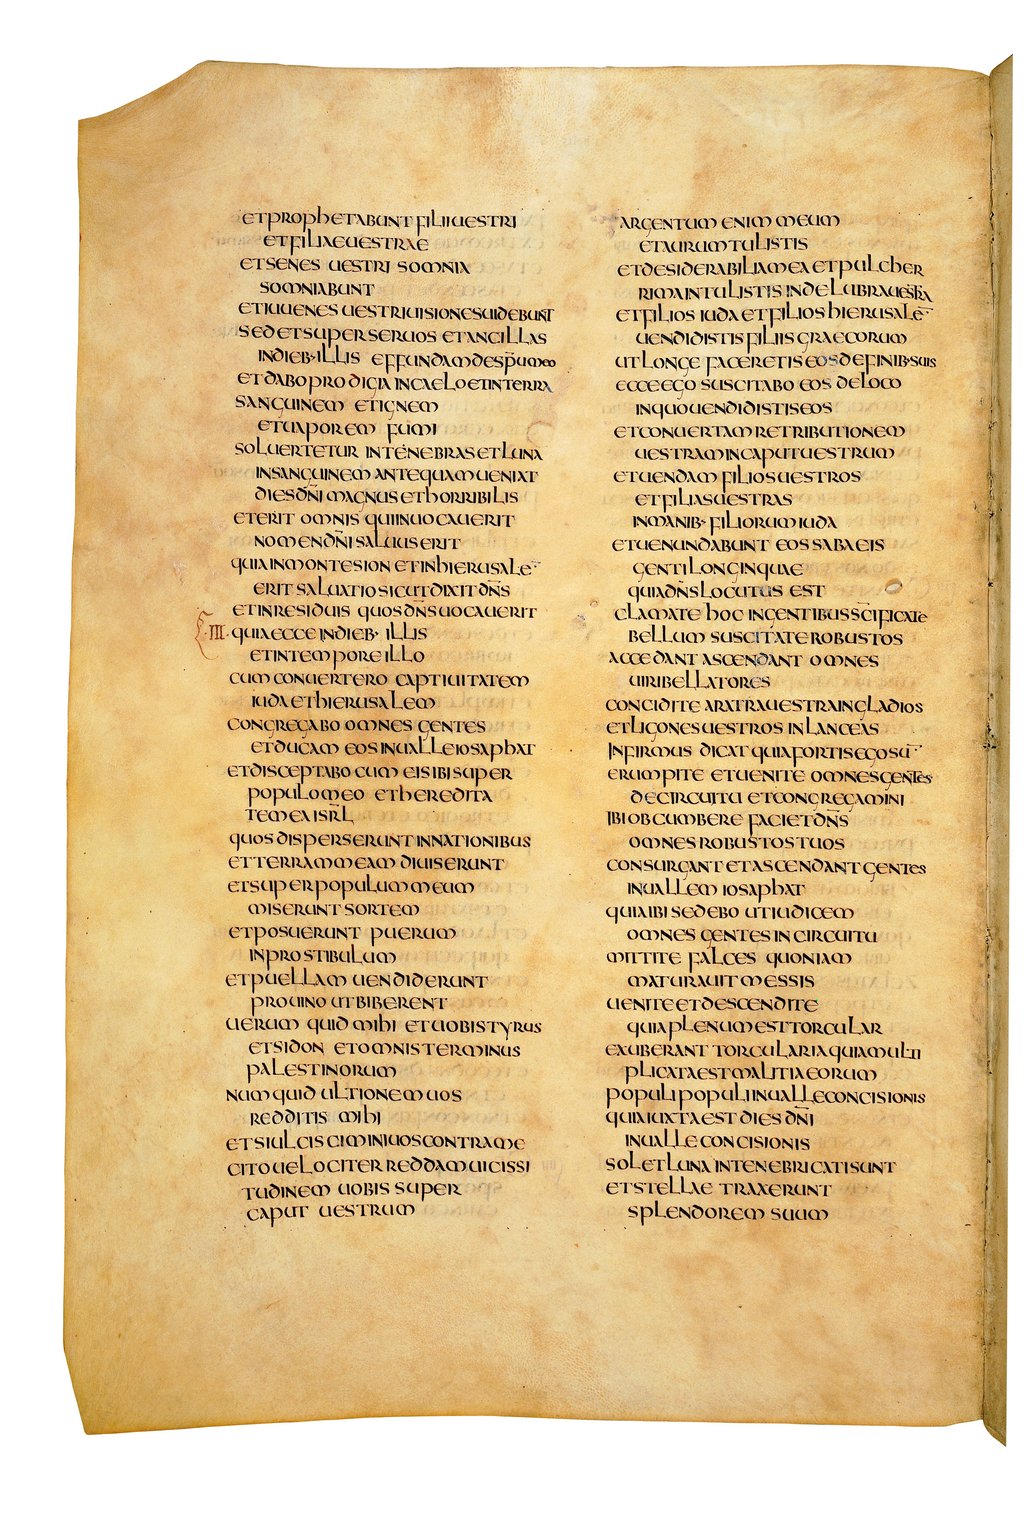 et prophetabunt filii uestri
et filiae uestrae
et senes uestri somnia
somniabunt
et iuuenes uestri uisiones uidebunt
sed et super seruos et ancillas
in dieb· illis effundam de sp̄u meo
et dabo prodigia in caelo et in terra
sanguinem et ignem
et uaporem fumi
sol uertetur in tenebras et luna
in sanguinem antequam ueniat
dies dn̄i magnus et horribilis
et erit omnis qui inuocauerit
nomen dn̄i saluus erit
quia in monte sion et in hierusale¯
erit saluatio sicut dixit dn̄s
et in residuis quos dn̄s uocauerit
·III· quia ecce in dieb· illis
et in tempore illo
cum conuertero captiuitatem
iuda et hierusalem
congregabo omnes gentes
et ducam eos in ualle iosaphat
et disceptabo cum eis ibi super
populo meo et heredita
te mea isrl̄
quos disperserunt in nationibus
et terram meam diuiserunt
et super populum meum
miserunt sortem
et posuerunt puerum
in prostibulum
et puellam uendiderunt
pro uino ut biberent
uerum quid mihi et uobis tyrus
et sidon et omnis terminus
palestinorum
numquid ultionem uos
redditis mihi
et si ulciscimini uos contra me
cito uelociter reddam uicissi
tudinem uobis super
caput uestrum
argentum enim meum
et aurum tulistis
et desiderabilia mea et pulcher
rima intulistis in delubra uestra
et filios iuda et filios hierusale¯
uendidistis filiis graecorum
ut longe faceretis eos de finib· suis
ecce ego suscitabo eos de loco
in quo uendidistis eos
et conuertam retributionem
uestram in caput uestrum
et uendam filios uestros
et filias uestras
in manib· filiorum iuda
et uenundabunt eos sabaeis
genti longinquae
quia dn̄s locutus est
clamate hoc in gentibus sc̄ificate
bellum suscitate robustos
accedant ascendant omnes
uiri bellatores
concidite aratra uestra in gladios
et ligones uestros in lanceas
infirmus dicat quia fortis ego su¯
erumpite et uenite omnes gentes
de circuitu et congregamini
ibi obcumbere faciet dn̄s
omnes robustos tuos
consurgant et ascendant gentes
in uallem iosaphat
quia ibi sedebo ut iudicem
omnes gentes in circuitu
mittite falces quoniam
maturauit messis
uenite et descendite
quia plenum est torcular
exuberant torcularia quia multi
plicata est malitia eorum
populi populi in ualle concisionis
quia iuxta est dies dn̄i
in ualle concisionis
sol et luna intenebricati sunt
et stellae traxerunt
splendorem suum